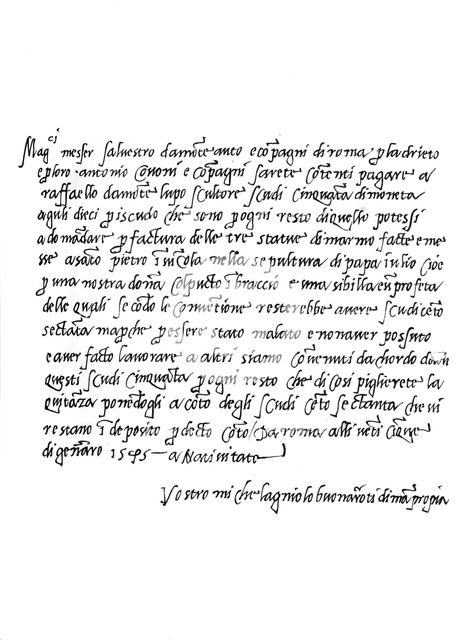 Magci messer salvestro damōte auto e cōpagni di roma p la drieto
e p loro antonio Covoni e cōpagni sarete cōtenti pagare a
raffaello damōte lupo scultore scudi cinquāta di moneta
a guli dieci p iscudo che sono p ogni resto di quello potessi
adomādare p factura delle tre statue di marmo facte e me
sse a sāto pietro ī vīcola nella sepultura di papa iulio cioe
p una nostra dōna col pucto ī braccio e una sibilla e ū profeta
delle quali secōdo le cōuētione resterebbe avere scudi cēto
sectāta ma p che p essere stato malato e non aver possuto
e aver facto lavorare a altri siamo cōvenuti dachordo dargni
questi scudi cinquāta p ogni resto che di cosi piglierete la
quitāza ponēdogli a cōto degli scudi cēto sectanta che vi
restano ī deposito p decto cōto / Da roma alli vēti cīque
di gēnaro 1545 a Nativitate
Vostro michelagniolo buonaroti di mā propia